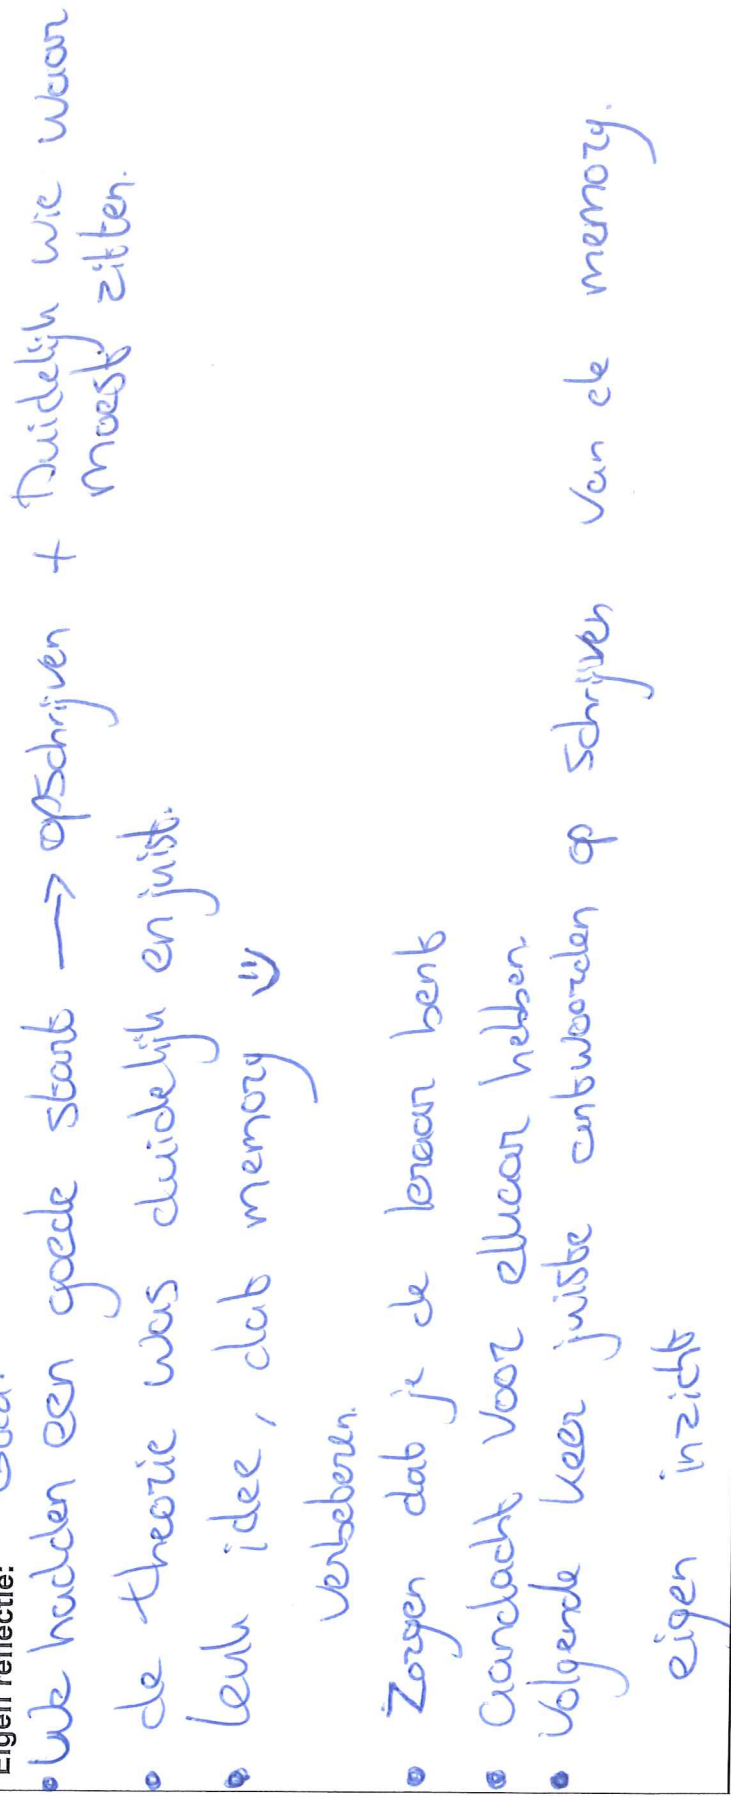 Eigen reflectie: Goed:
• We hadden een goede start → opschrijven + Duidelijk wie waar
moest zitten.
• de theorie was duidelijk en juist.
• leuk idee, dat memory :)
verbeteren.
• Zorgen dat je de leraar bent
• aandacht voor elkaar hebben.
• Volgende keer juiste antwoorden op schrijven van de memory.
eigen inzicht